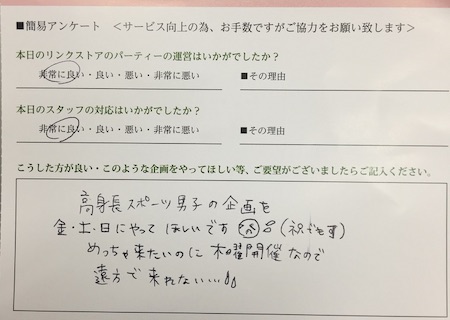 ■簡易アンケート ＜サービス向上の為、お手数ですがご協力をお願い致します＞
本日のリンクストアのパーティーの運営はいかがでしたか？
非常に良い・良い・悪い・非常に悪い ■その理由
本日のスタッフの対応はいかがでしたか？
非常に良い・良い・悪い・非常に悪い ■その理由
こうした方が良い・このような企画をやってほしい等、ご要望がございましたらご記入ください。
高身長スポーツ男子の企画を
金・土・日にやってほしいです
めっちゃ来たいのに木曜開催なので
遠方で来れない…